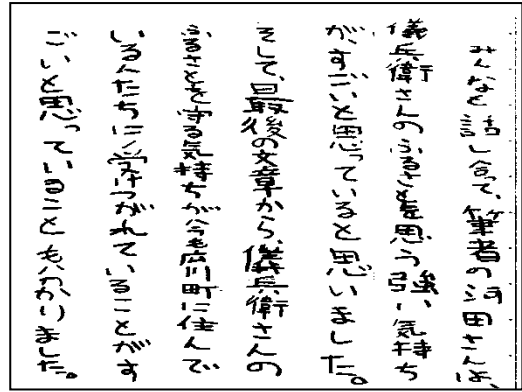 みんなと話し合って、筆者の河田さんは、
儀兵衛さんのふるさとを思う強い気持ち
が、すごいと思っていると思いました。
そして、最後の文章から、儀兵衛さんの
ふるさとを守る気持ちが今も広川町に住んで
いる人たちに受けつがれていることがす
ごいと思っていることもわかりました。